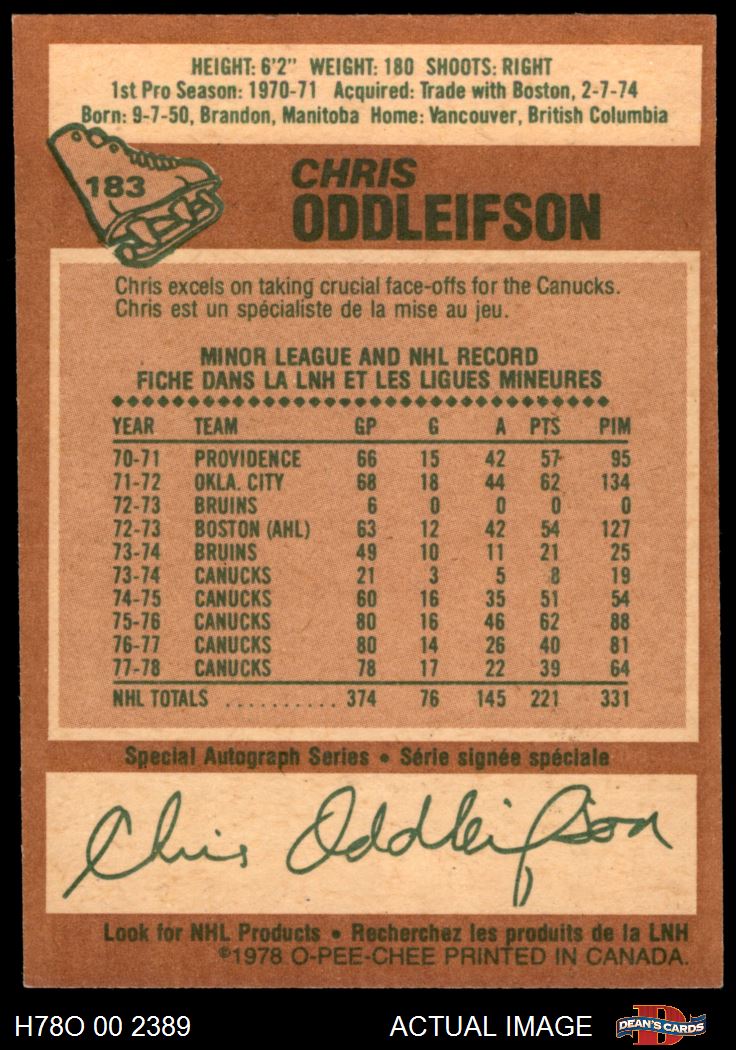 HEIGHT: 6'2" WEIGHT: 180 SHOOTS: RIGHT
1st Pro Season: 1970-71 Acquired: Trade with Boston, 2-7-74
Born: 9-7-50, Brandon, Manitoba Home: Vancouver, British Columbia
183
CHRIS
ODDLEIFSON
Chris excels on taking crucial face-offs for the Canucks.
Chris est un spécialiste de la mise au jeu.
MINOR LEAGUE AND NHL RECORD
FICHE DANS LA LNH ET LES LIGUES MINEURES
YEAR TEAM GP G A PTS PIM
70-71 PROVIDENCE 66 15 42 57 95
71-72 OKLA. CITY 68 18 44 62 134
72-73 BRUINS 6 0 0 0 0
72-73 BOSTON (AHL) 63 12 42 54 127
73-74 BRUINS 49 10 11 21 25
73-74 CANUCKS 21 3 5 8 19
74-75 CANUCKS 60 16 35 51 54
75-76 CANUCKS 80 16 46 62 88
76-77 CANUCKS 80 14 26 40 81
77-78 CANUCKS 78 17 22 39 64
NHL TOTALS .......... 374 76 145 221 331
Special Autograph Series • Série signée spéciale
Chris Oddleifson
Look for NHL Products • Recherchez les produits de la LNH
©1978 O-PEE-CHEE PRINTED IN CANADA.
H78O 00 2389 ACTUAL IMAGE DEAN'S CARDS